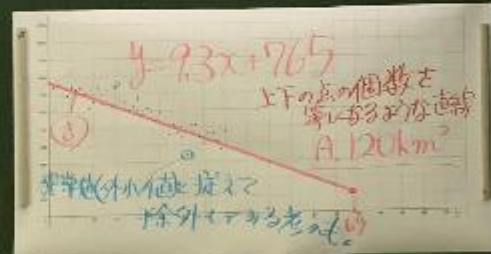 y=9.3x+765
上下の点の個数を
等しくなるような直線
A.120km²
8
異常値(外れ値)と捉えて
除外して考える考えも。